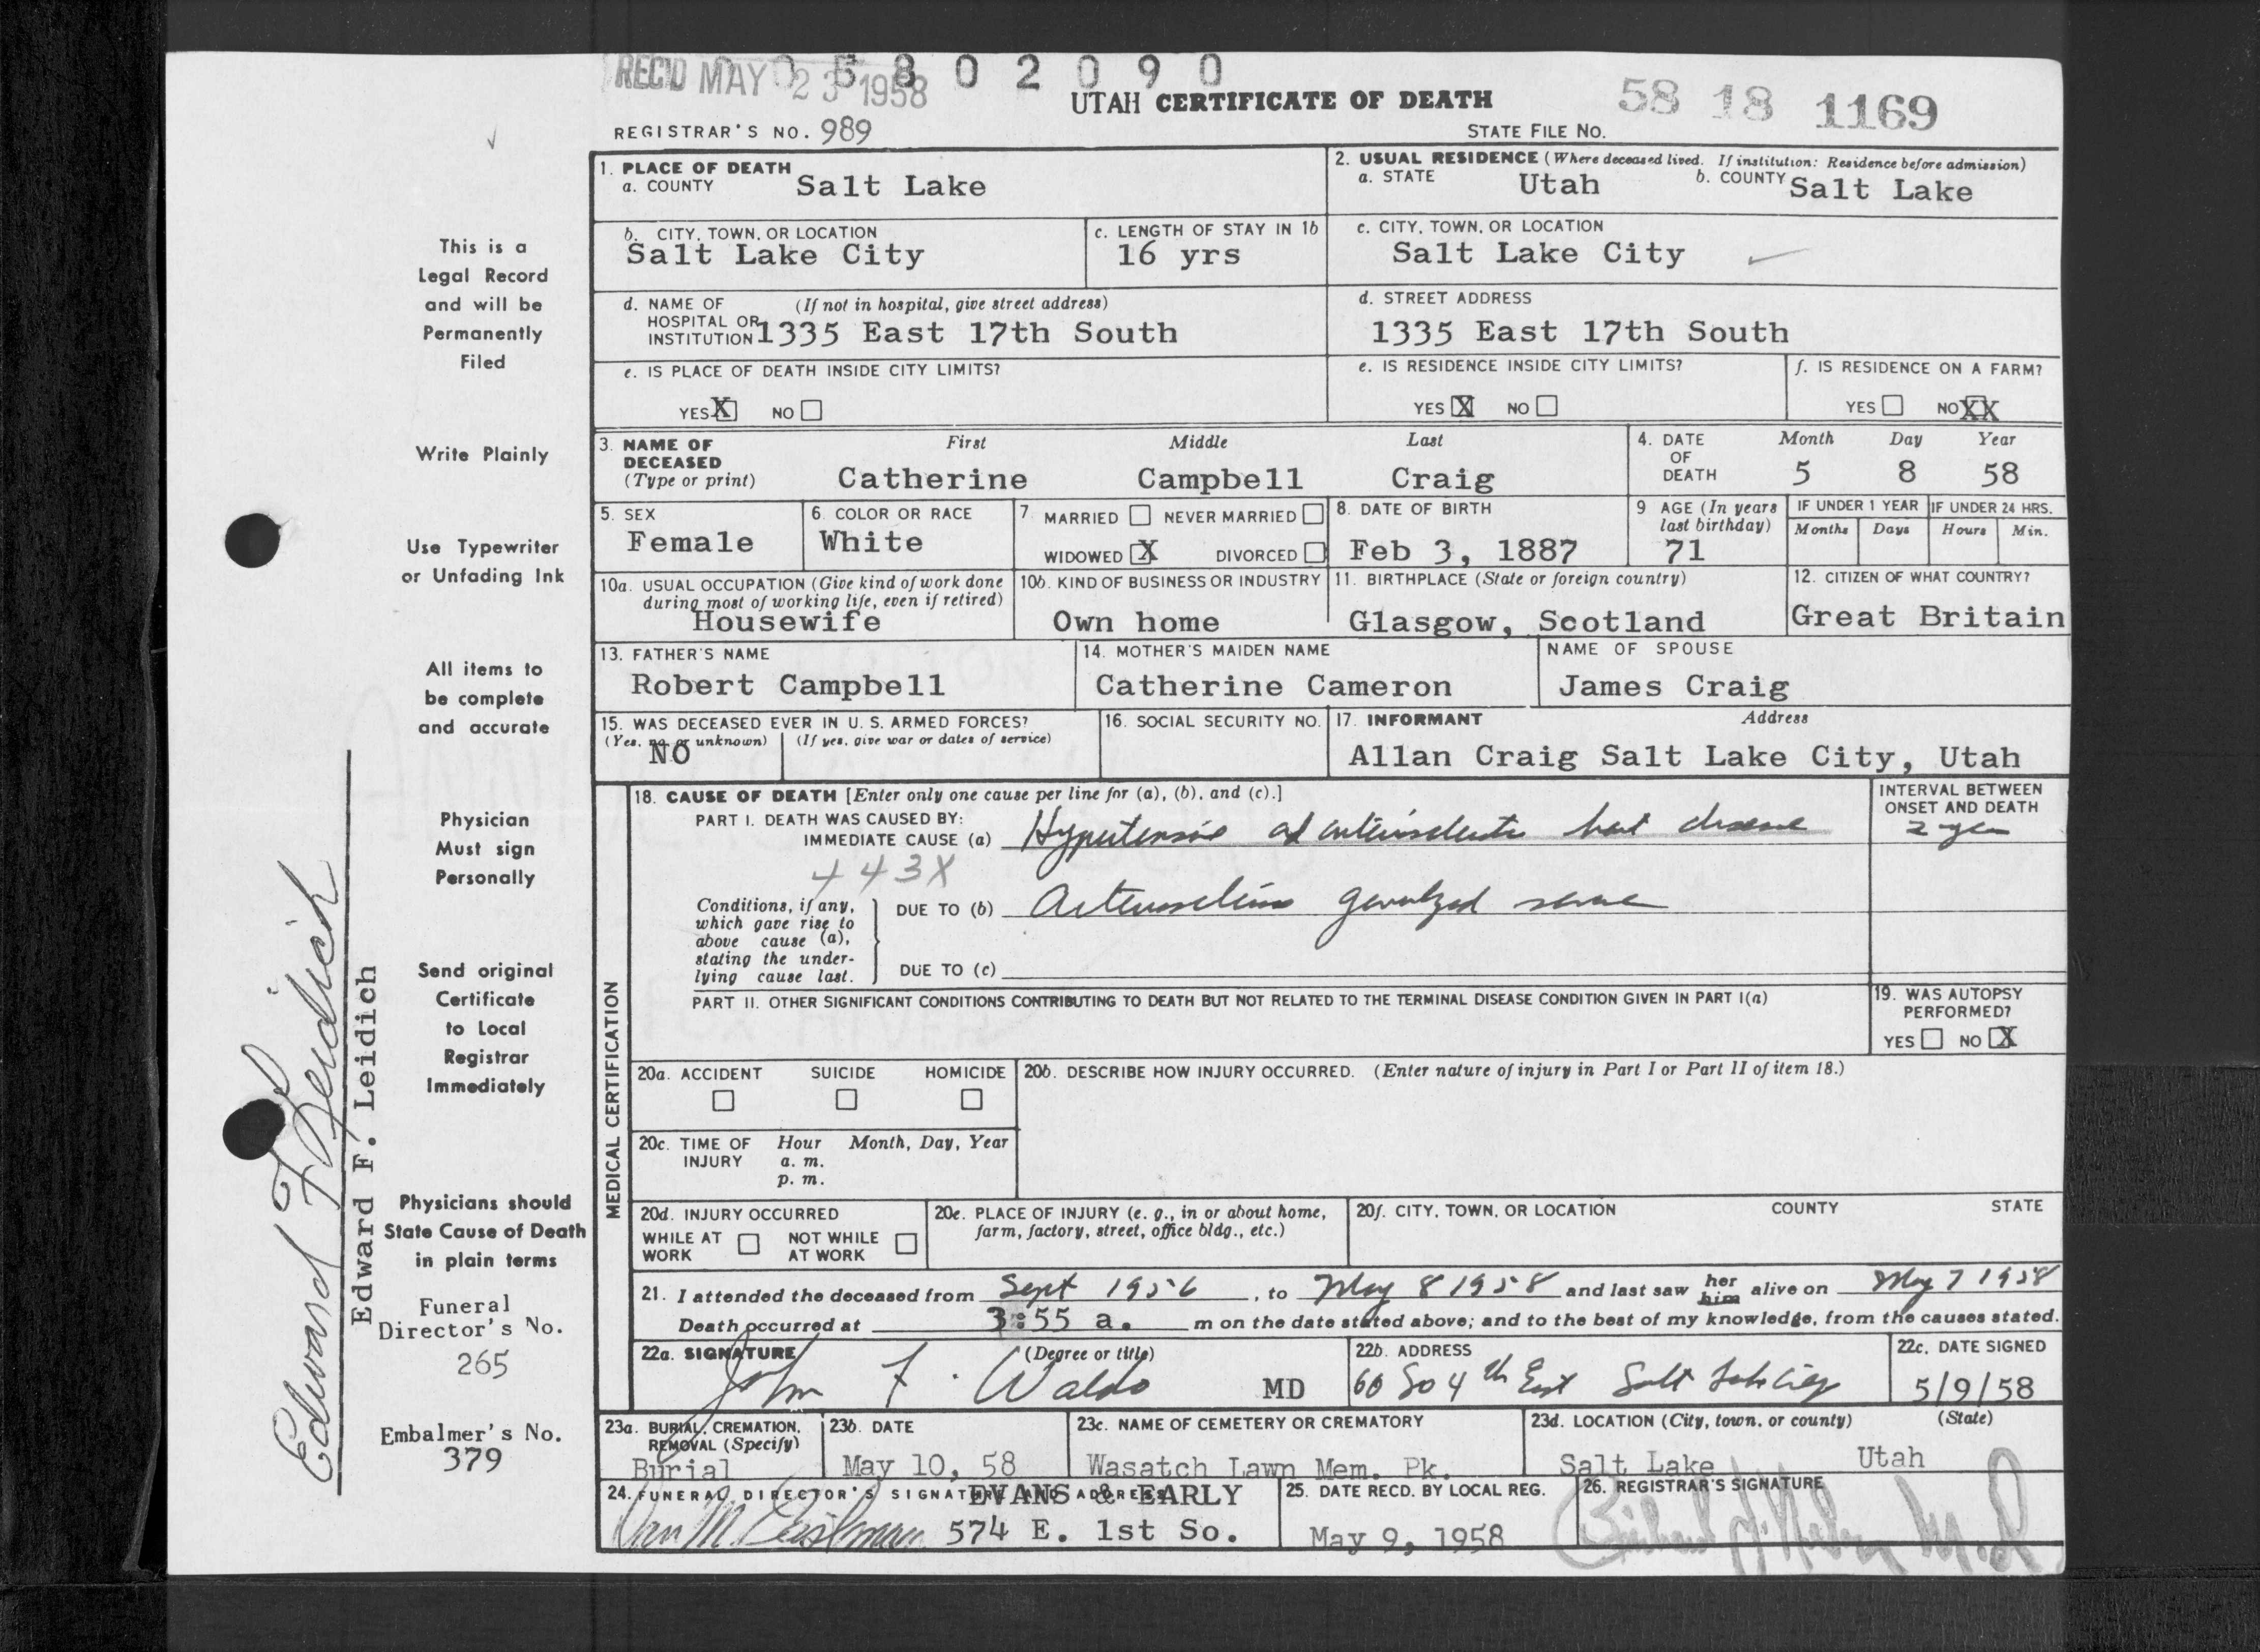 REC'D MAY 23 1958
0 5 8 0 2 0 9 0
UTAH CERTIFICATE OF DEATH
58 18 1169
REGISTRAR'S NO. 989
STATE FILE NO.
1. PLACE OF DEATH
a. COUNTY Salt Lake
2. USUAL RESIDENCE (Where deceased lived. If institution: Residence before admission)
a. STATE Utah b. COUNTY Salt Lake
b. CITY, TOWN, OR LOCATION
Salt Lake City
c. LENGTH OF STAY IN 1b
16 yrs
c. CITY, TOWN, OR LOCATION
Salt Lake City
d. NAME OF HOSPITAL OR INSTITUTION (If not in hospital, give street address)
1335 East 17th South
d. STREET ADDRESS
1335 East 17th South
e. IS PLACE OF DEATH INSIDE CITY LIMITS?
YES X NO
e. IS RESIDENCE INSIDE CITY LIMITS?
YES X NO
f. IS RESIDENCE ON A FARM?
YES NO XX
3. NAME OF DECEASED (Type or print)
First Middle Last
Catherine Campbell Craig
4. DATE OF DEATH
Month Day Year
5 8 58
5. SEX
Female
6. COLOR OR RACE
White
7. MARRIED NEVER MARRIED
WIDOWED X DIVORCED
8. DATE OF BIRTH
Feb 3, 1887
9 AGE (In years last birthday)
71
IF UNDER 1 YEAR
Months Days
IF UNDER 24 HRS.
Hours Min.
10a. USUAL OCCUPATION (Give kind of work done during most of working life, even if retired)
Housewife
10b. KIND OF BUSINESS OR INDUSTRY
Own home
11. BIRTHPLACE (State or foreign country)
Glasgow, Scotland
12. CITIZEN OF WHAT COUNTRY?
Great Britain
13. FATHER'S NAME
Robert Campbell
14. MOTHER'S MAIDEN NAME
Catherine Cameron
NAME OF SPOUSE
James Craig
15. WAS DECEASED EVER IN U. S. ARMED FORCES?
(Yes, no, or unknown) (If yes, give war or dates of service)
NO
16. SOCIAL SECURITY NO.
17. INFORMANT Address
Allan Craig Salt Lake City, Utah
MEDICAL CERTIFICATION
18. CAUSE OF DEATH [Enter only one cause per line for (a), (b), and (c).]
PART I. DEATH WAS CAUSED BY:
IMMEDIATE CAUSE (a) Hypertensive
disease
443X
INTERVAL BETWEEN ONSET AND DEATH
Conditions, if any, which gave rise to above cause (a), stating the underlying cause last.
DUE TO (b)
DUE TO (c)
PART II. OTHER SIGNIFICANT CONDITIONS CONTRIBUTING TO DEATH BUT NOT RELATED TO THE TERMINAL DISEASE CONDITION GIVEN IN PART I(a)
19. WAS AUTOPSY PERFORMED?
YES NO X
20a. ACCIDENT SUICIDE HOMICIDE
20b. DESCRIBE HOW INJURY OCCURRED. (Enter nature of injury in Part I or Part II of item 18.)
20c. TIME OF INJURY Hour Month, Day, Year
a. m.
p. m.
20d. INJURY OCCURRED
WHILE AT WORK NOT WHILE AT WORK
20e. PLACE OF INJURY (e. g., in or about home, farm, factory, street, office bldg., etc.)
20f. CITY, TOWN, OR LOCATION COUNTY STATE
21. I attended the deceased from Sept 1956, to May 8 1958 and last saw her him alive on May 7 1958
Death occurred at 3:55 a. m on the date stated above; and to the best of my knowledge, from the causes stated.
22a. SIGNATURE (Degree or title)
John F. Waldo MD
22b. ADDRESS
60 So 4th East Salt Lake City
22c. DATE SIGNED
5/9/58
23a. BURIAL, CREMATION, REMOVAL (Specify)
Burial
23b. DATE
May 10, 58
23c. NAME OF CEMETERY OR CREMATORY
Wasatch Lawn Mem. Pk.
23d. LOCATION (City, town, or county) (State)
Salt Lake Utah
24. FUNERAL DIRECTOR'S SIGNATURE AND ADDRESS
EVANS & EARLY
574 E. 1st So.
25. DATE RECD. BY LOCAL REG.
May 9, 1958
26. REGISTRAR'S SIGNATURE
This is a
Legal Record
and will be
Permanently
Filed
Write Plainly
Use Typewriter
or Unfading Ink
All items to
be complete
and accurate
Physician
Must sign
Personally
Send original
Certificate
to Local
Registrar
Immediately
Physicians should
State Cause of Death
in plain terms
Funeral
Director's No.
265
Embalmer's No.
379
Edward F Leidich
Edward F. Leidich